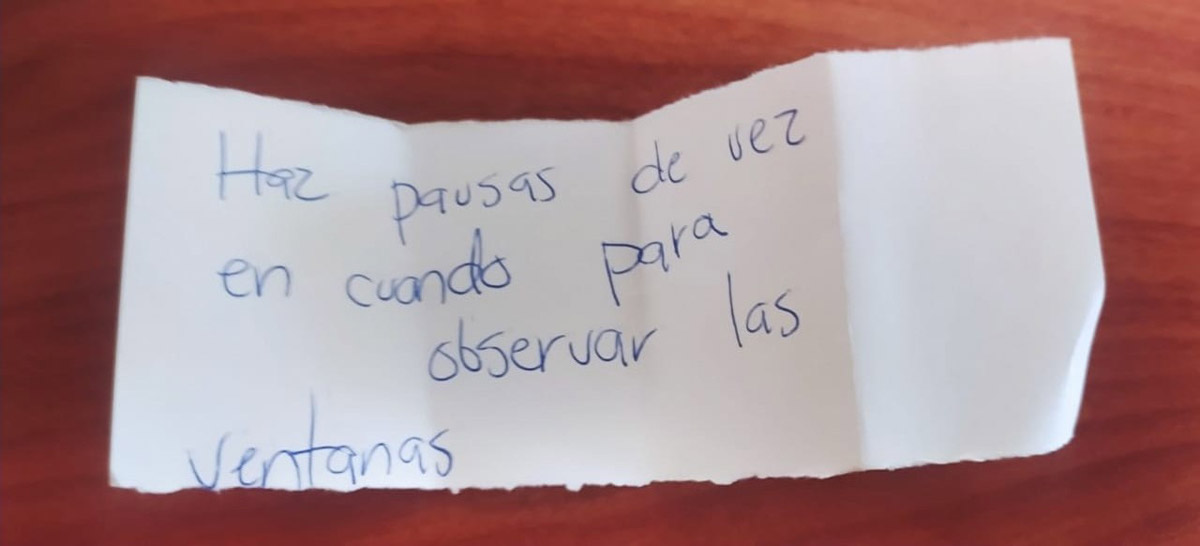 Haz pausas de vez
en cuando para
observar las
ventanas